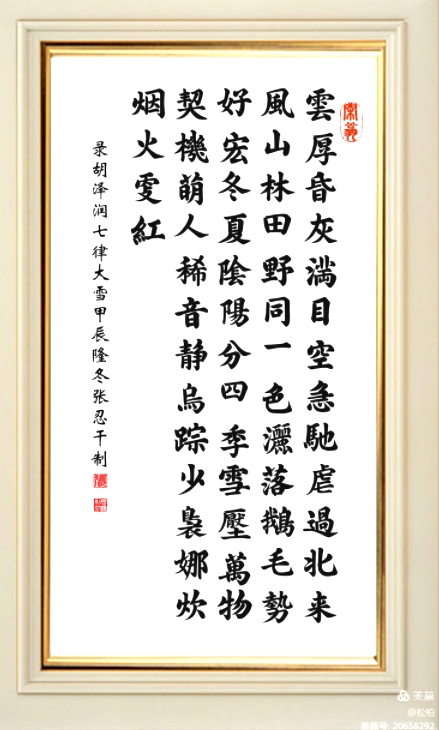 雲厚昏灰満目空急馳虐過北来
風山林田野同一色灑落鵝毛勢
好宏冬夏陰陽分四季雪壓萬物
契機萌人稀音静烏踪少裊娜炊
烟火雯紅
录胡泽润七律大雪甲辰隆冬张忍干制
美篇
@松柏
美篇号: 20658292